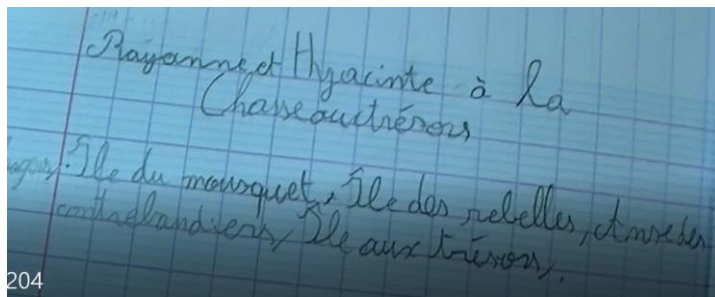 Rayanne et Hyacinte à la
Chasse aux trésors
Île du mousquet, Île des rebelles, Anse des
contrebandiers, Île aux trésors,.
204